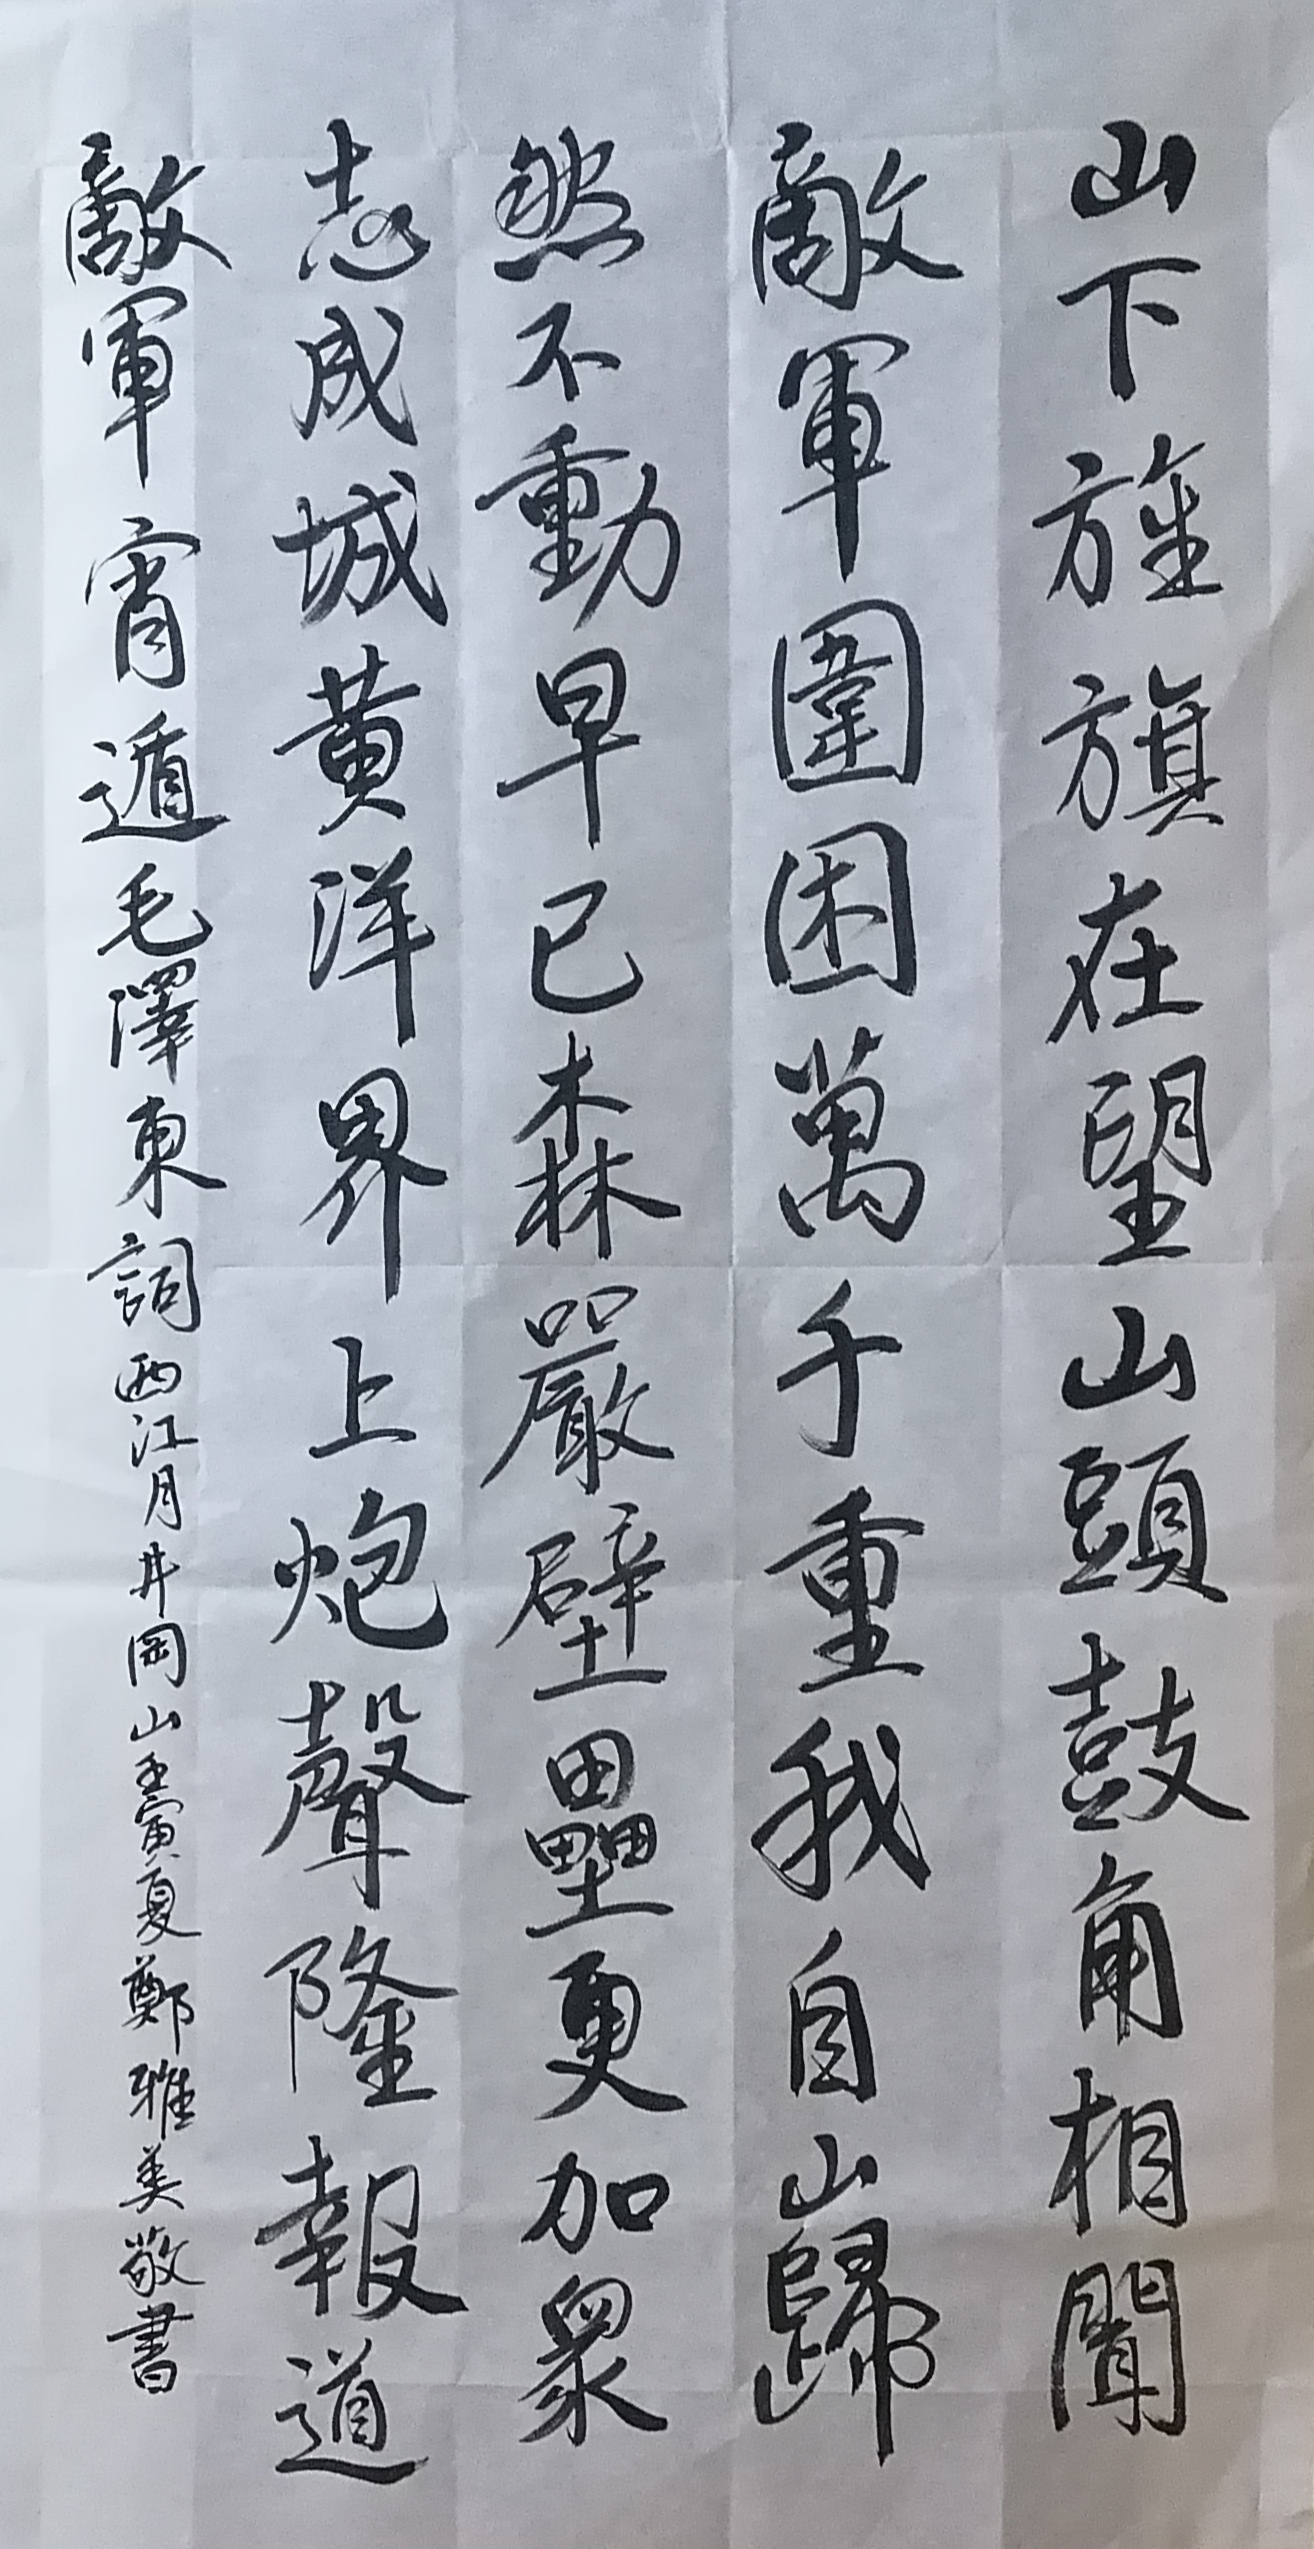 山下旌旗在望山頭鼓角相聞
敵軍圍困萬千重我自巋
然不動早已森嚴壁壘更加眾
志成城黃洋界上炮聲隆報道
敵軍宵遁毛澤東詞西江月井岡山壬寅夏鄭雅美敬書